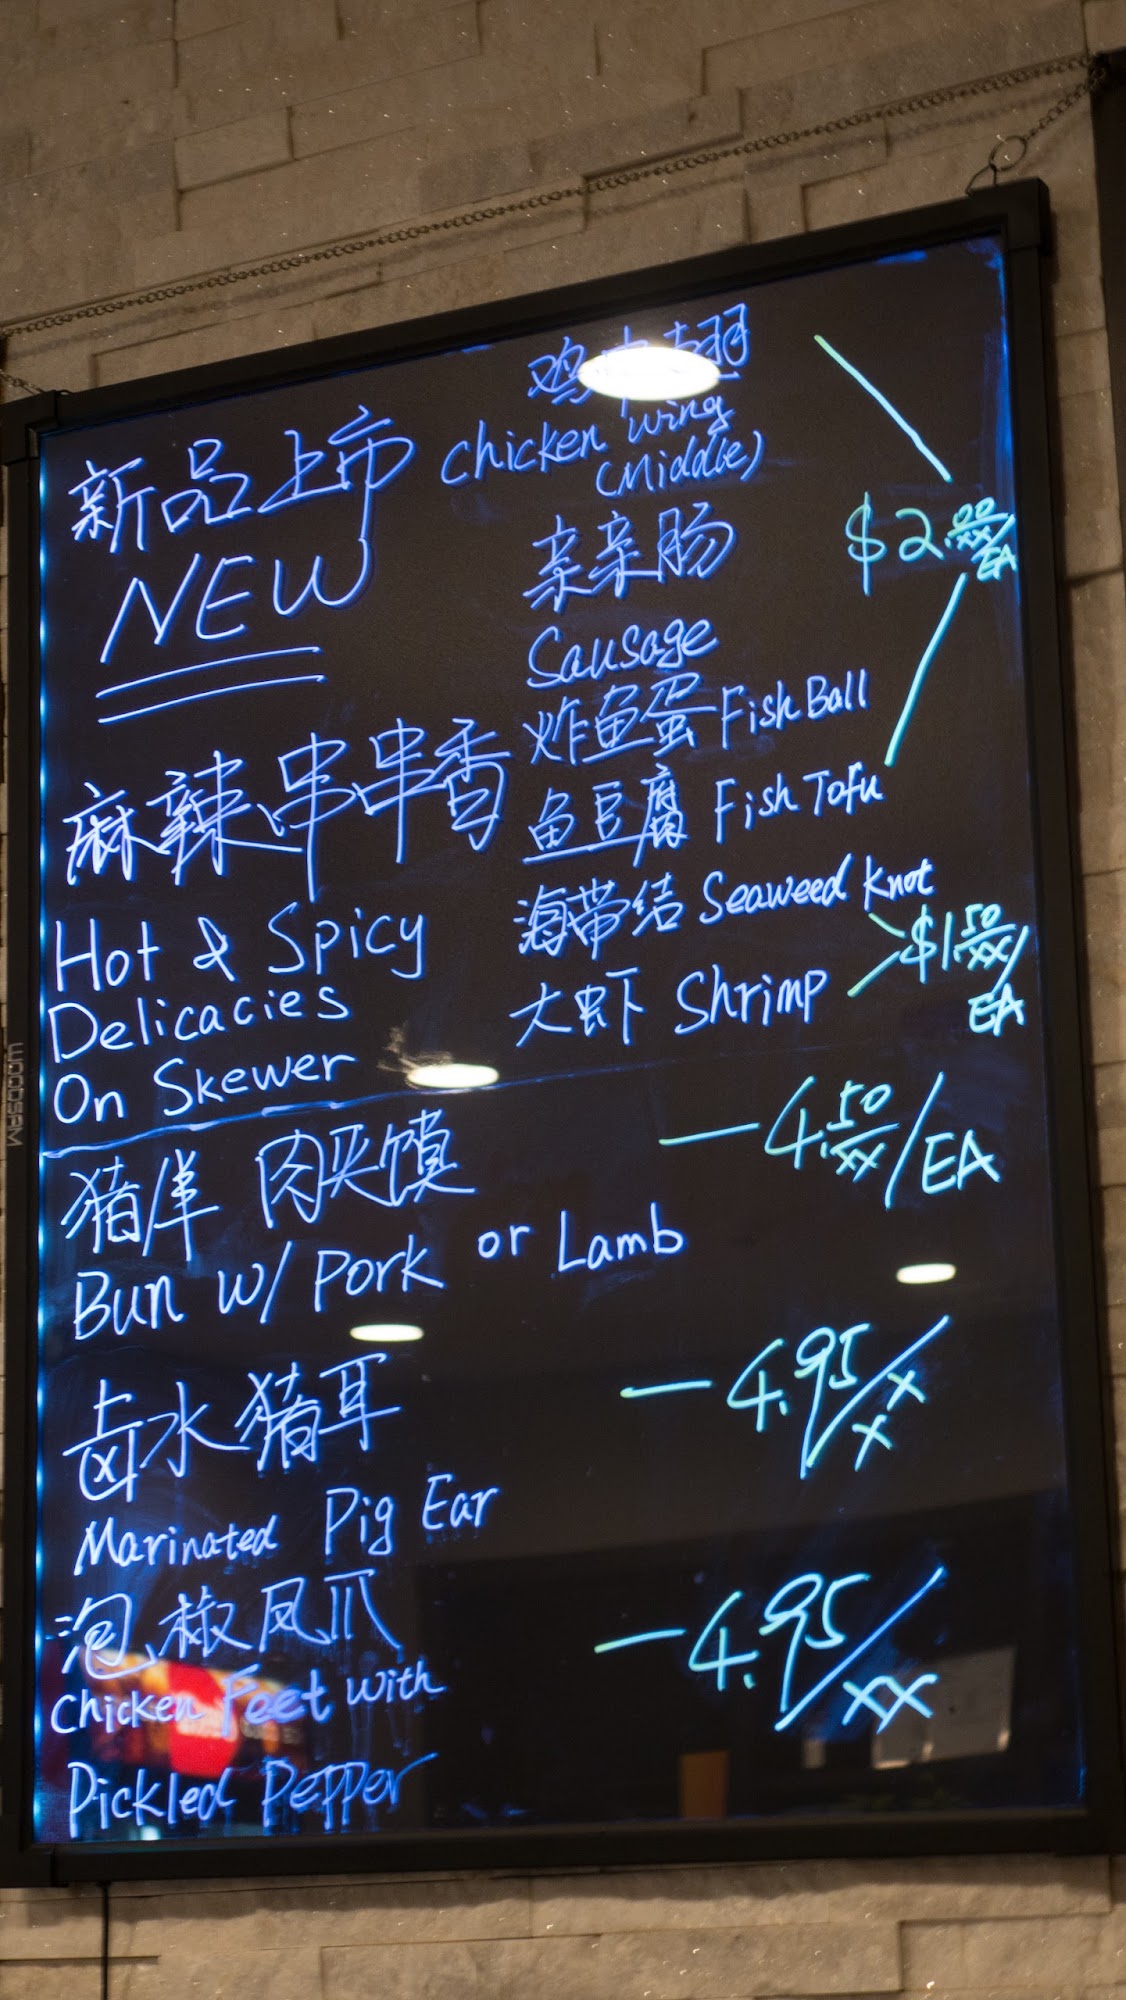 新品上市
NEW
麻辣串串香
Hot & Spicy
Delicacies
On Skewer
鸡中翅
Chicken Wing
(Middle)
亲亲肠
Sausage
炸鱼蛋 Fish Ball
鱼豆腐 Fish Tofu
$2.00/EA
海带结 Seaweed Knot
大虾 Shrimp
$1.50/EA
猪/羊 肉夹馍
Bun w/ Pork or Lamb
— 4.50/EA
卤水猪耳
Marinated Pig Ear
— 4.95/
泡椒凤爪
Chicken Feet With
Pickled Pepper
— 4.95/